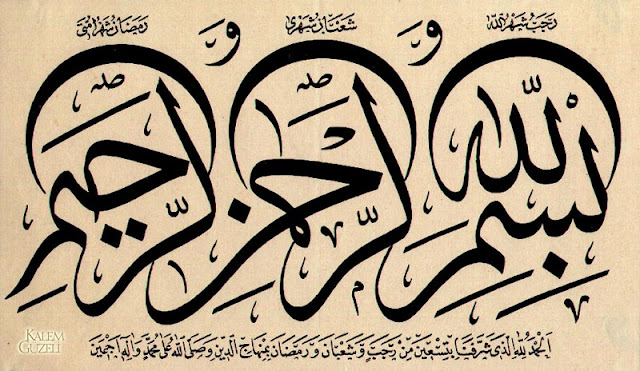 رجب شهر الله و شعبان شهري و رمضان شهر امتي
بسم الله الرحمن الرحيم
الحمد لله الذي شرفنا بتسعين من رجب و شعبان و رمضان بمنهاج الدين وصلى الله على محمد واله اجمعين
KALEM
GÜZELİ